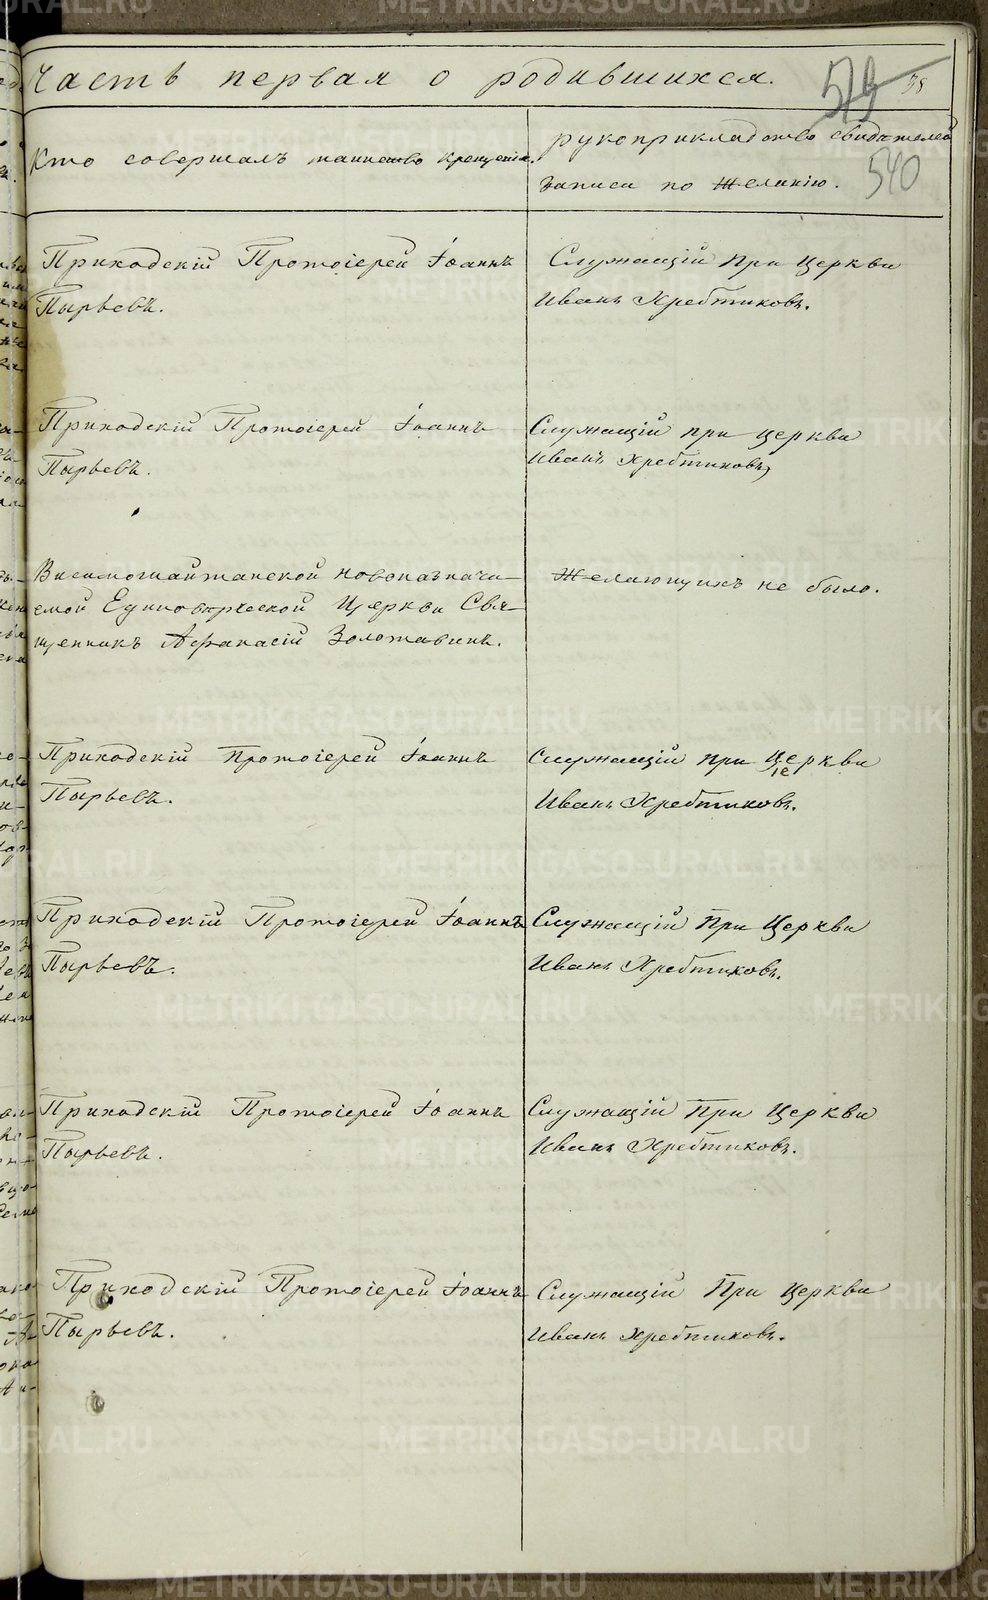 Часть первая о родившихся.
38
540
Кто совершалъ таинство крещенія.
рукоприкладство свидѣтелей
записи по желанію.
Приходскій Протоіерей Іоаннъ
Пырьевъ.
Служащій при Церкви
Иванъ Хребтиковъ.
Приходскій Протоіерей Іоаннъ
Пырьевъ.
Служащій при церкви
Иванъ Хребтиковъ,
Висимошайтанской новоназнача-
емой Единовѣрческой Церкви Свя-
щенникъ Афанасій Золотавинъ.
Желающихъ не было.
Приходскій Протоіерей Іоаннъ
Пырьевъ.
Служащій при Церкви
Иванъ Хребтиковъ.
Приходскій Протоіерей Іоаннъ
Пырьевъ.
Служащій при Церкви
Иванъ Хребтиковъ.
Приходскій Протоіерей Іоаннъ
Пырьевъ.
Служащій При Церкви
Иванъ Хребтиковъ.
Приходскій Протоіерей Іоаннъ
Пырьевъ.
Служащій При Церкви
Иванъ Хребтиковъ.
METRIKI.GASO-URAL.RU